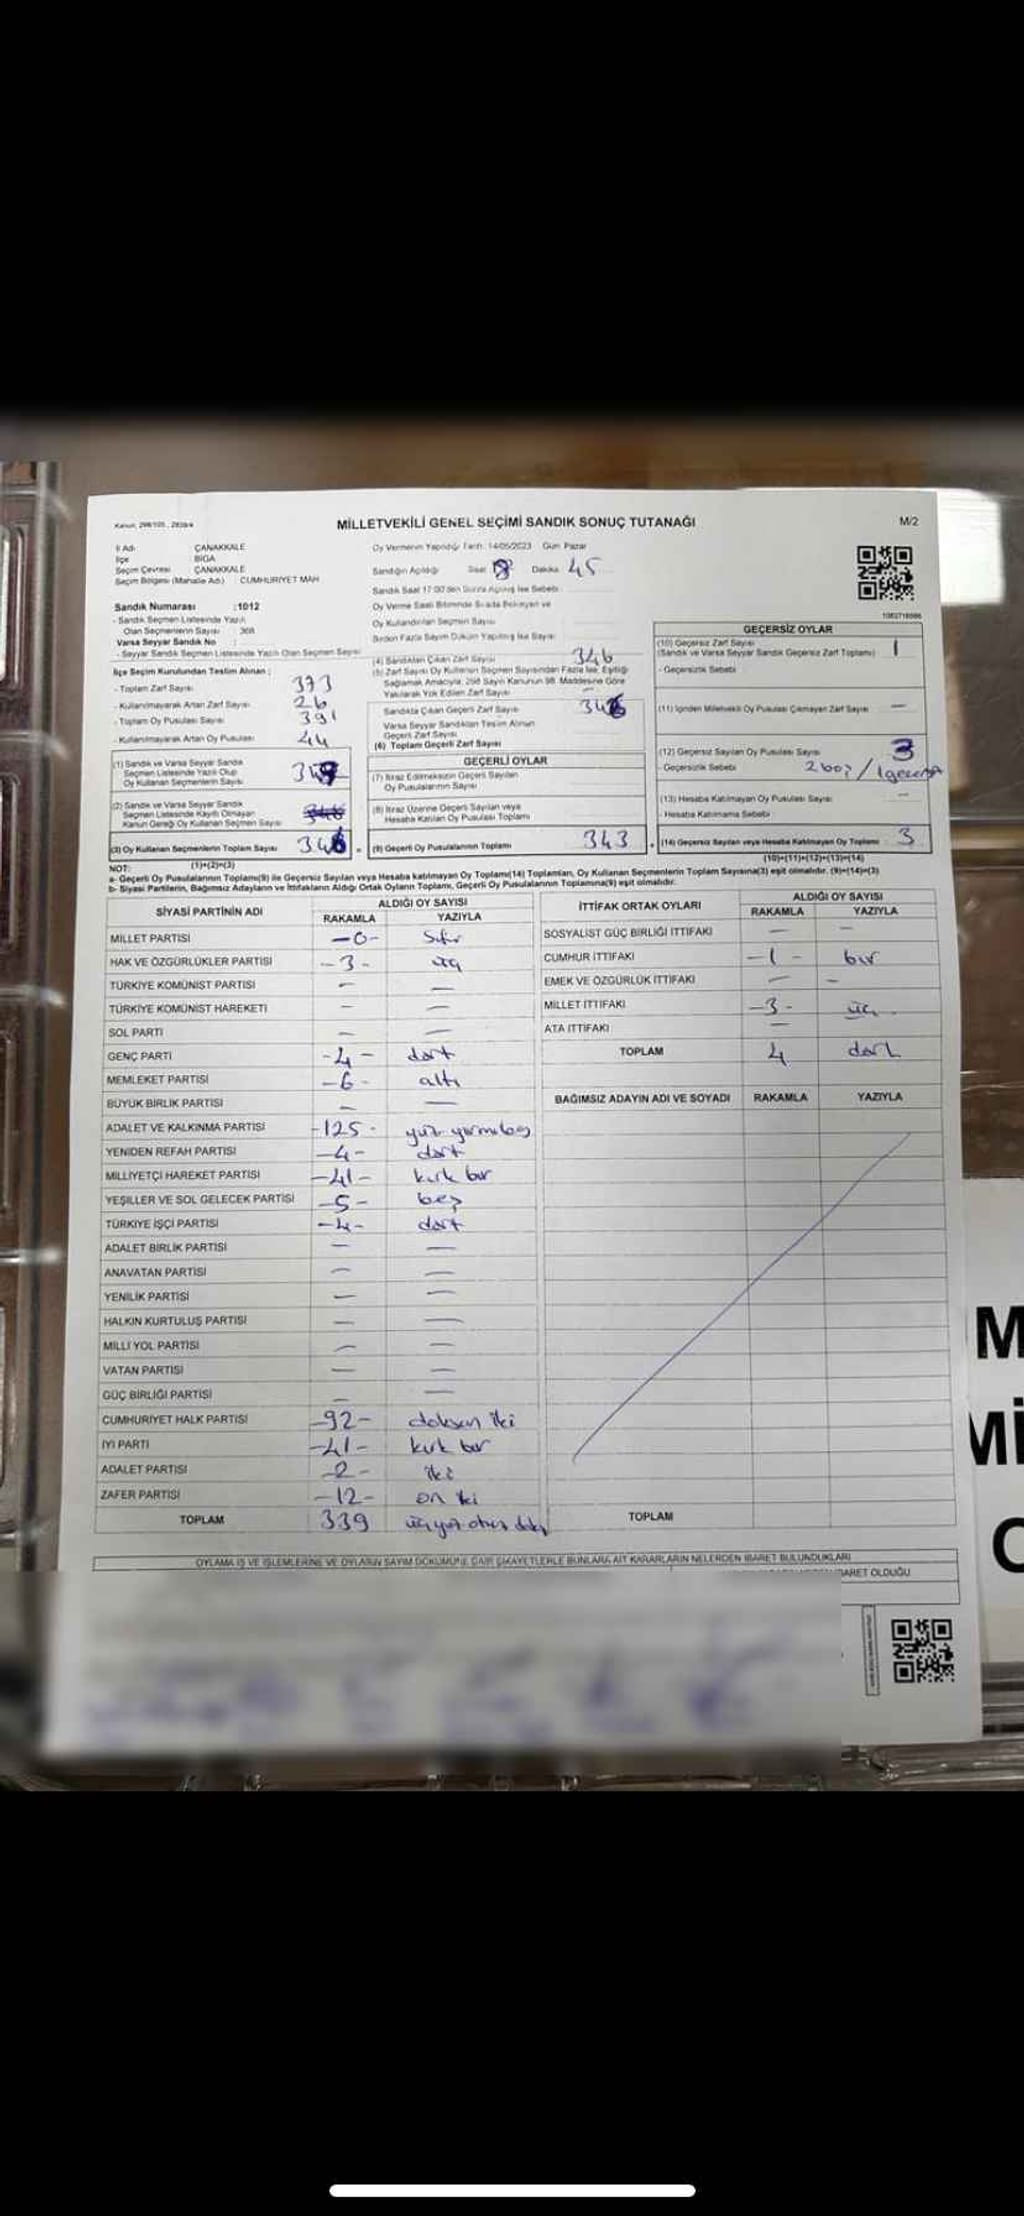 Kanun: 298/105, 2839/4
MİLLETVEKİLİ GENEL SEÇİMİ SANDIK SONUÇ TUTANAĞI
M/2
İl Adı : ÇANAKKALE
İlçe : BİGA
Seçim Çevresi : ÇANAKKALE
Seçim Bölgesi (Mahalle Adı) : CUMHURİYET MAH
Sandık Numarası :1012
- Sandık Seçmen Listesinde Yazılı
Olan Seçmenlerin Sayısı : 368
Varsa Seyyar Sandık No :
- Seyyar Sandık Seçmen Listesinde Yazılı Olan Seçmen Sayısı
Oy Vermenin Yapıldığı Tarih: 14/05/2023 Gün: Pazar
Sandığın Açıldığı Saat Dakika 45
Sandık Saat 17:00'den Sonra Açılmış İse Sebebi:
Oy Verme Saati Bitiminde Sırada Bekleyen ve
Oy Kullandırılan Seçmen Sayısı
Birden Fazla Sayım Döküm Yapılmış İse Sayısı
1082716986
İlçe Seçim Kurulundan Teslim Alınan :
- Toplam Zarf Sayısı 373
- Kullanılmayarak Artan Zarf Sayısı 26
- Toplam Oy Pusulası Sayısı 391
- Kullanılmayarak Artan Oy Pusulası 44
(1) Sandık ve Varsa Seyyar Sandık
Seçmen Listesinde Yazılı Olup
Oy Kullanan Seçmenlerin Sayısı
(2) Sandık ve Varsa Seyyar Sandık
Seçmen Listesinde Kayıtlı Olmayan
Kanun Gereği Oy Kullanan Seçmen Sayısı
(3) Oy Kullanan Seçmenlerin Toplam Sayısı 346
(1)+(2)=(3)
(4) Sandıktan Çıkan Zarf Sayısı 346
(5) Zarf Sayısı Oy Kullanan Seçmen Sayısından Fazla İse, Eşitliği
Sağlamak Amacıyla, 298 Sayılı Kanunun 98. Maddesine Göre
Yakılarak Yok Edilen Zarf Sayısı
Sandıkta Çıkan Geçerli Zarf Sayısı
Varsa Seyyar Sandıktan Teslim Alınan
Geçerli Zarf Sayısı
(6) Toplam Geçerli Zarf Sayısı
GEÇERLİ OYLAR
(7) İtiraz Edilmeksizin Geçerli Sayılan
Oy Pusulalarının Sayısı
(8) İtiraz Üzerine Geçerli Sayılan veya
Hesaba Katılan Oy Pusulası Toplamı
(9) Geçerli Oy Pusulalarının Toplamı 343
GEÇERSİZ OYLAR
(10) Geçersiz Zarf Sayısı
(Sandık ve Varsa Seyyar Sandık Geçersiz Zarf Toplamı) 1
- Geçersizlik Sebebi
(11) İçinden Milletvekili Oy Pusulası Çıkmayan Zarf Sayısı —
(12) Geçersiz Sayılan Oy Pusulası Sayısı 3
- Geçersizlik Sebebi 2 boş / 1 geçersiz
(13) Hesaba Katılmayan Oy Pusulası Sayısı —
- Hesaba Katılmama Sebebi
(14) Geçersiz Sayılan veya Hesaba Katılmayan Oy Toplamı 3
(10)+(11)+(12)+(13)=(14)
NOT:
a- Geçerli Oy Pusulalarının Toplamı(9) ile Geçersiz Sayılan veya Hesaba katılmayan Oy Toplamı(14) Toplamları, Oy Kullanan Seçmenlerin Toplam Sayısına(3) eşit olmalıdır. (9)+(14)=(3)
b- Siyasi Partilerin, Bağımsız Adayların ve İttifakların Aldığı Ortak Oyların Toplamı, Geçerli Oy Pusulalarının Toplamına(9) eşit olmalıdır.
SİYASİ PARTİNİN ADI ALDIĞI OY SAYISI
RAKAMLA YAZIYLA
MİLLET PARTİSİ -0- Sıfır
HAK VE ÖZGÜRLÜKLER PARTİSİ -3- üç
TÜRKİYE KOMÜNİST PARTİSİ — —
TÜRKİYE KOMÜNİST HAREKETİ — —
SOL PARTİ — —
GENÇ PARTİ -4- dört
MEMLEKET PARTİSİ -6- altı
BÜYÜK BİRLİK PARTİSİ — —
ADALET VE KALKINMA PARTİSİ -125- yüz yirmibeş
YENİDEN REFAH PARTİSİ -4- dört
MİLLİYETÇİ HAREKET PARTİSİ -41- kırk bir
YEŞİLLER VE SOL GELECEK PARTİSİ -5- beş
TÜRKİYE İŞÇİ PARTİSİ -4- dört
ADALET BİRLİK PARTİSİ — —
ANAVATAN PARTİSİ — —
YENİLİK PARTİSİ — —
HALKIN KURTULUŞ PARTİSİ — —
MİLLİ YOL PARTİSİ — —
VATAN PARTİSİ — —
GÜÇ BİRLİĞİ PARTİSİ — —
CUMHURİYET HALK PARTİSİ -92- doksan iki
İYİ PARTİ -41- kırk bir
ADALET PARTİSİ -2- iki
ZAFER PARTİSİ -12- on iki
TOPLAM 339 üçyüz otuz dokuz
İTTİFAK ORTAK OYLARI ALDIĞI OY SAYISI
RAKAMLA YAZIYLA
SOSYALİST GÜÇ BİRLİĞİ İTTİFAKI — —
CUMHUR İTTİFAKI -1- bir
EMEK VE ÖZGÜRLÜK İTTİFAKI — —
MİLLET İTTİFAKI -3- üç
ATA İTTİFAKI —
TOPLAM 4 dört
BAĞIMSIZ ADAYIN ADI VE SOYADI RAKAMLA YAZIYLA
TOPLAM
OYLAMA İŞ VE İŞLEMLERİNE VE OYLARIN SAYIM DÖKÜMÜNE DAİR ŞİKAYETLERLE BUNLARA AİT KARARLARIN NELERDEN İBARET BULUNDUKLARI
İBARET OLDUĞU
M
Mİ